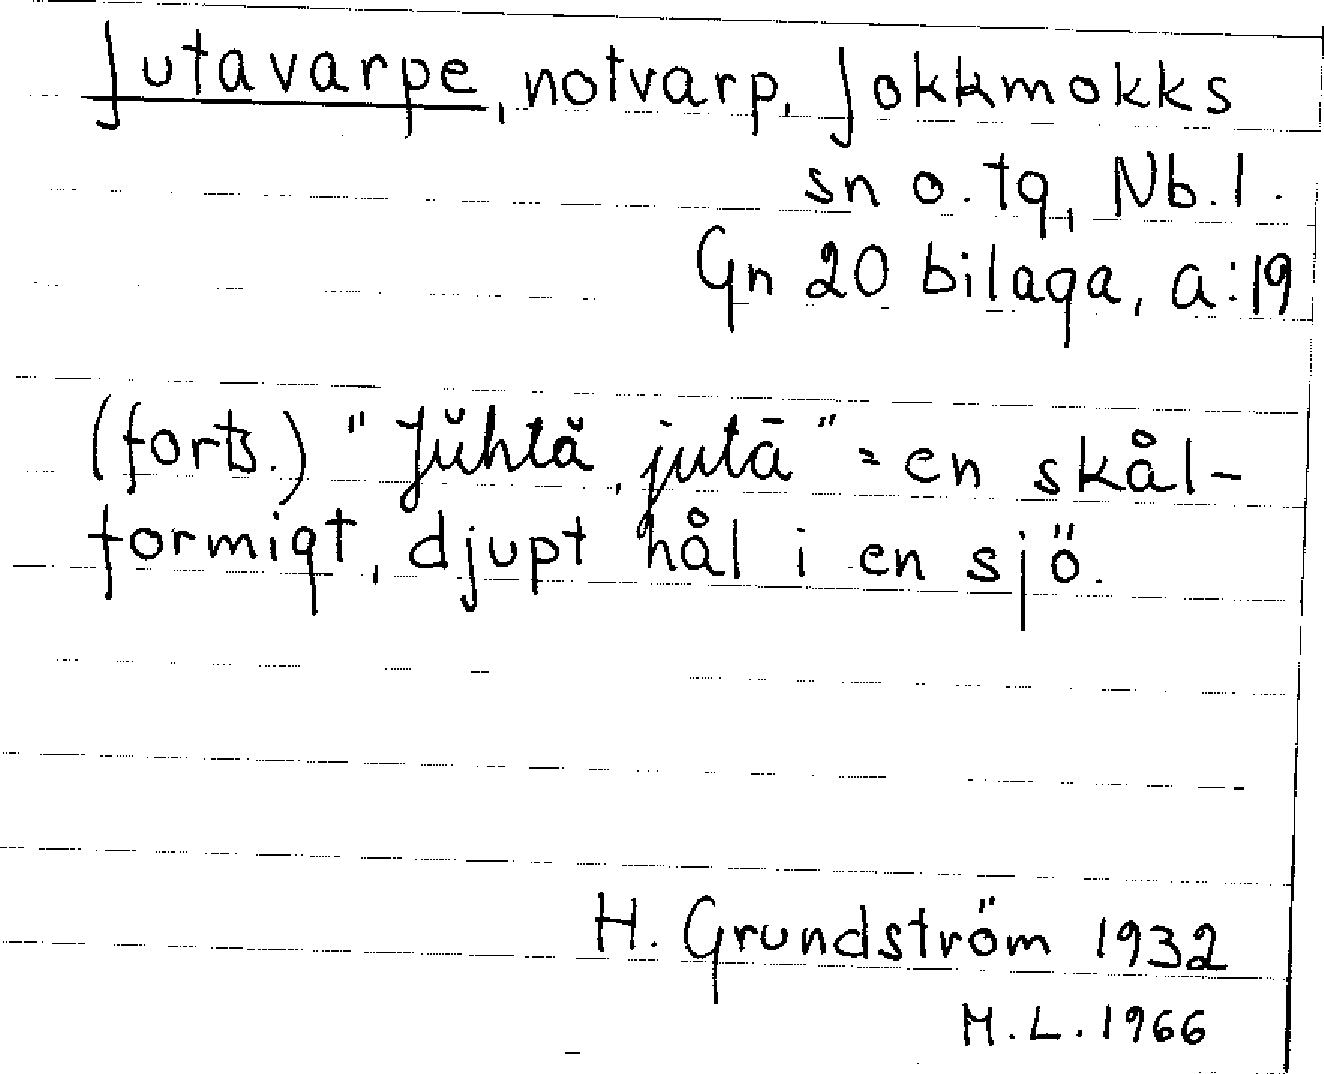 Jutavarpe, notvarp, Jokkmokks
sn o. tg, Nb. l.
Gn 20 bilaga, a:19
(forts.) "Jŭhtă, jutā" = en skål-
formigt, djupt hål i en sjö.
H. Grundström 1932
M.L. 1966